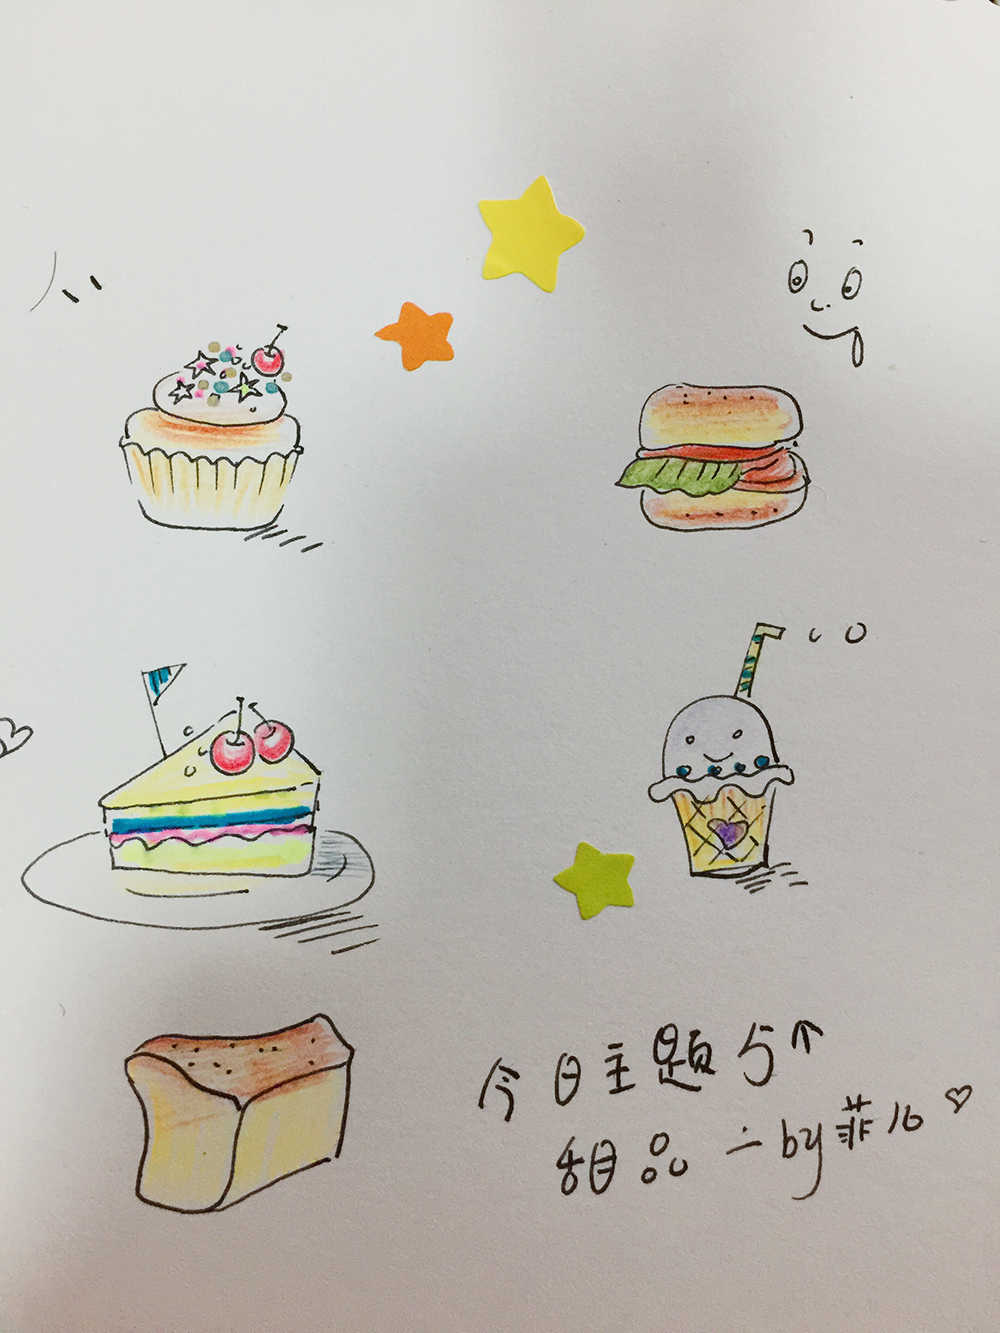 今日主题5个
甜品 — by 菲儿